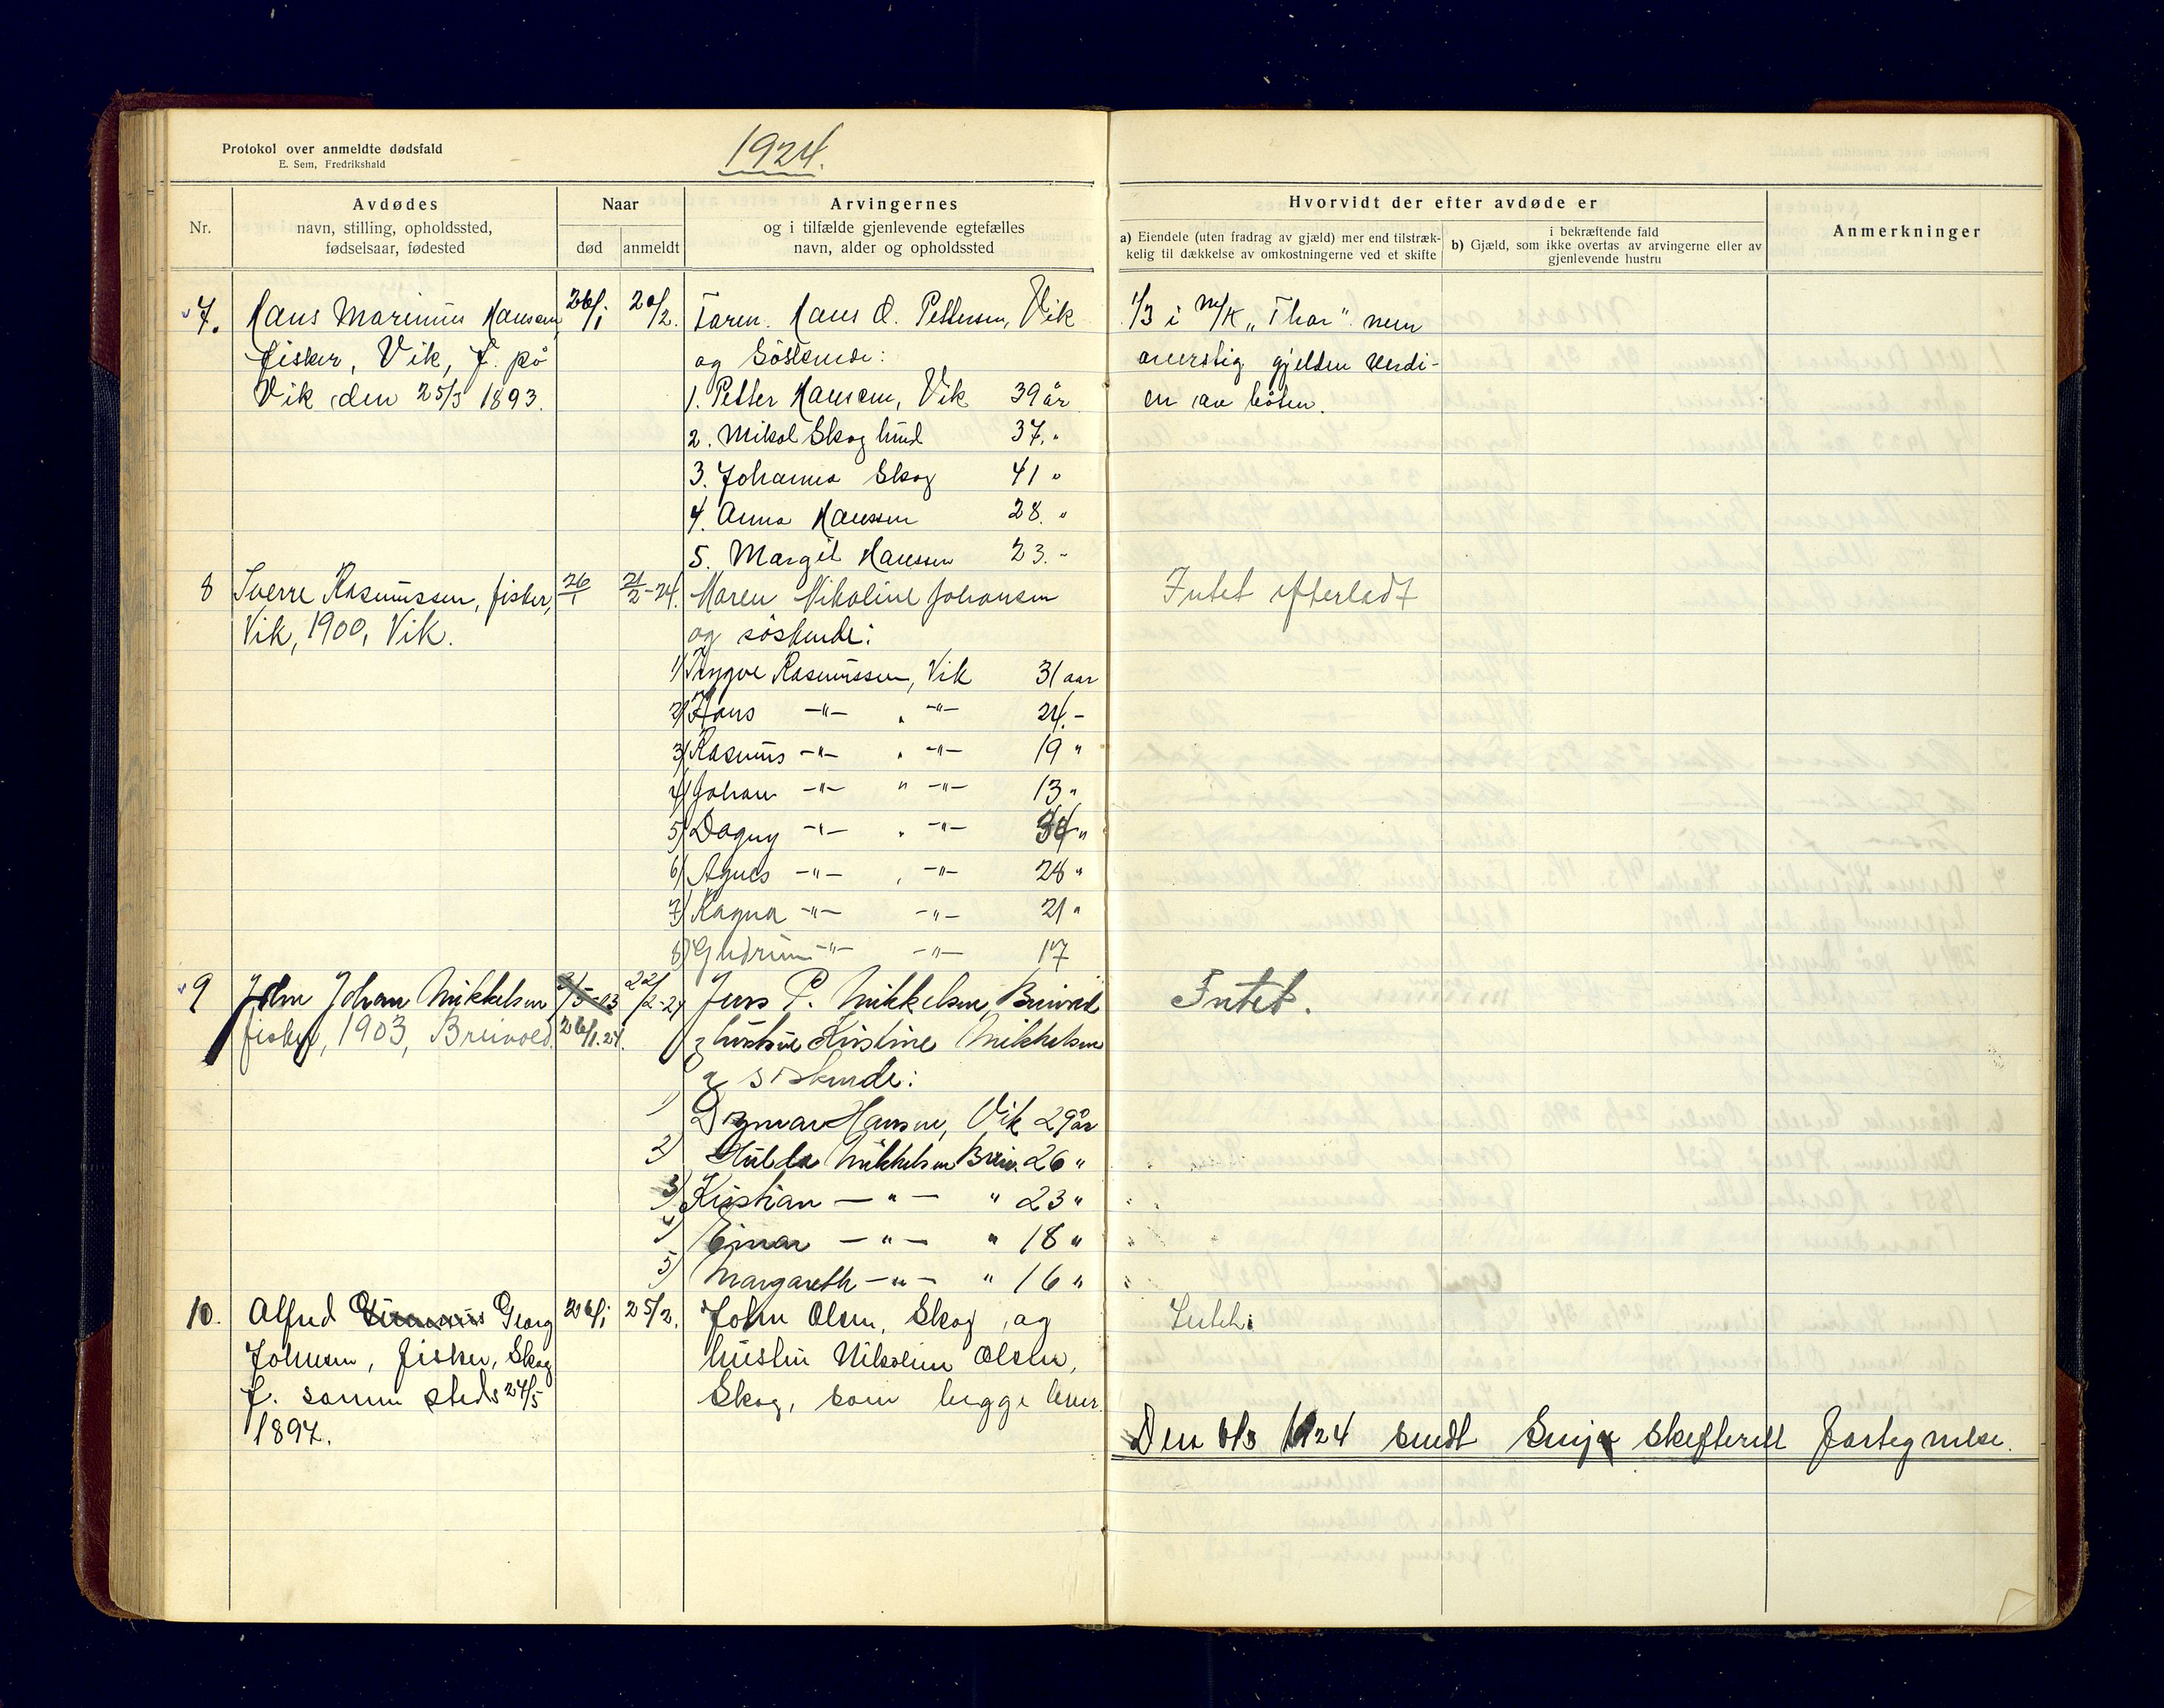 Protokol over anmeldte dødsfald
E. Sem, Fredrikshald
1924.
Nr.
Avdødes
navn, stilling, opholdssted,
fødselsaar, fødested
Naar
død
anmeldt
Arvingernes
og i tilfælde gjenlevende egtefælles
navn, alder og opholdssted
Hvorvidt der efter avdøde er
a) Eiendele (uten fradrag av gjæld) mer end tilstræk-
kelig til dækkelse av omkostningerne ved et skifte
i bekræftende fald
b) Gjæld, som ikke overtas av arvingerne eller av
gjenlevende hustru
Anmerkninger
7. Hans Marinius Hansen 26/1 20/2. Faren. Hans O. Pettersen, Vik 1/3 i M/K „Thor" men
fisker, Vik, f. på og Söskende: overstig gjelden verdi-
Vik den 25/3 1893. 1. Petter Hansen, Vik 39 år en av båten.
2. Mikal Skoglund 37. "
3. Johanna Skog 41 "
4. Anna Hanssen 28. "
5. Margit Hanssen 23. -
8 Sverre Rasmussen, fisker, 26/1 21/2-24. Maren Nikoline Johansen Intet efterladt
Vik, 1900, Vik. og søskende:
1) Trygve Rasmussen, Vik 31 aar
2) Hans -"- " -"- 24. -
3) Rasmus -"- " -"- 19 "
4) Johan -"- " -"- 13 "
5) Dagny -"- " -"- 34 "
6) Agnes -"- " -"- 28 "
7) Ragna -"- -"- 21 "
8) Gudrun -"- -"- 17
9 John Johan Mikkelsen 2/5-03 22/2-24 Jens P. Mikkelsen, Breivold Intet.
fisker, 1903, Breivold. 26/1.24. og hustru Kristine Mikkelsen
og søskende:
1) Dagmar Hansen, Vik 29 år
2) Hulda Mikkelsen Breiv. 26 "
3) Kristian - " - " 23 "
4) Einar - " - " 18 "
5) Margareth - " - " 16 "
10. Alfred Georg 26/1 25/2. John Olsen, Skog, og Intet.
Johnsen, fisker, Skog hustru Nikoline Olsen,
f. samme steds 24/5 Skog, som begge lever.
1897.
Den 6/3 1924 sendt Senja skifterett fortegnelse.